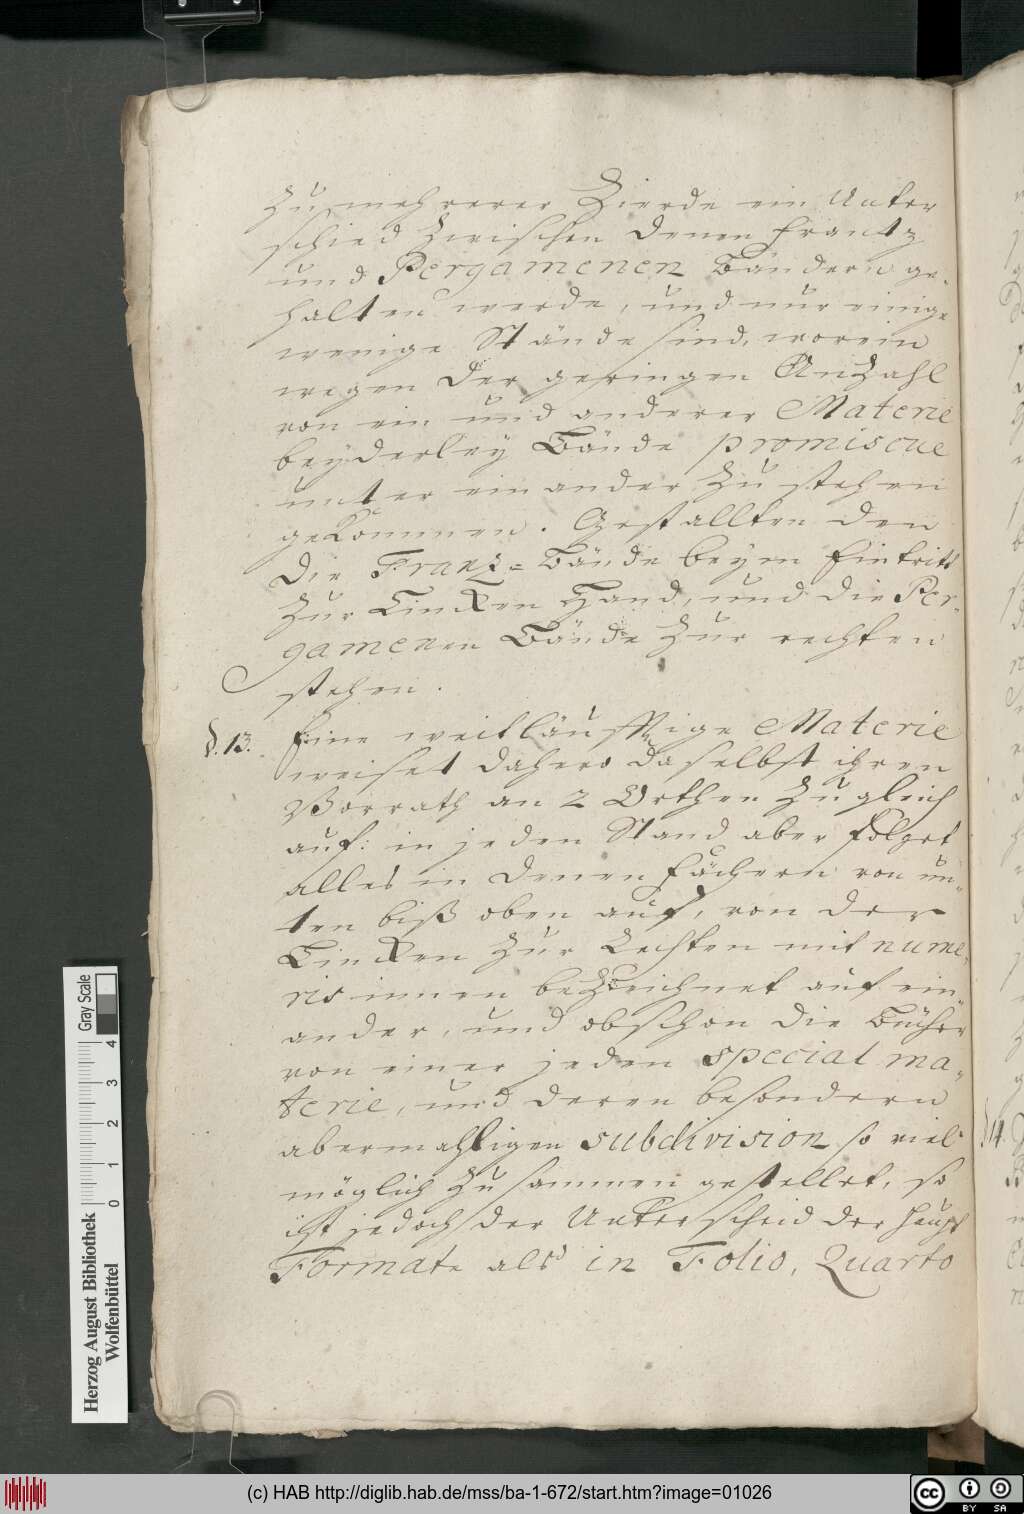 zu mehrerer Zierde ein Unter
schied zwischen denen Frantz
und Pergamenen Bändern ge-
halten werde, und nur einige
wenige Stände sind, worein
wegen der geringen Anzahl
von ein und anderer Materie
beyderley Bände promiscue
unter einander zu stehen
gekommen. Gestallten den
die Franz-Bände beym Eintritt
zur Lincken Hand, und die Per-
gamenen Bände zur rechten
stehen.
§. 13. Eine weitläufftige Materie
weiset dahero daselbst ihren
Vorrath an 2 Orthen zugleich
auf: in jeden Stand aber folget
alles in denen Fächern von un-
ten biß oben auf, von der
Lincken zur Rechten mit nume-
ris innen bezeichnet auf ein-
ander, und obschon die Bücher
von einer jeden special ma-
terie, und deren besondern
abermahligen subdivision so viel
möglich zusammen gestellet, so
ist jedoch der Unterscheid der Haupt
Formate als in Folio, Quarto
§ 14.
Gray Scale
0 1 2 3 4
Herzog August Bibliothek
Wolfenbüttel
(c) HAB http://diglib.hab.de/mss/ba-1-672/start.htm?image=01026
cc BY SA